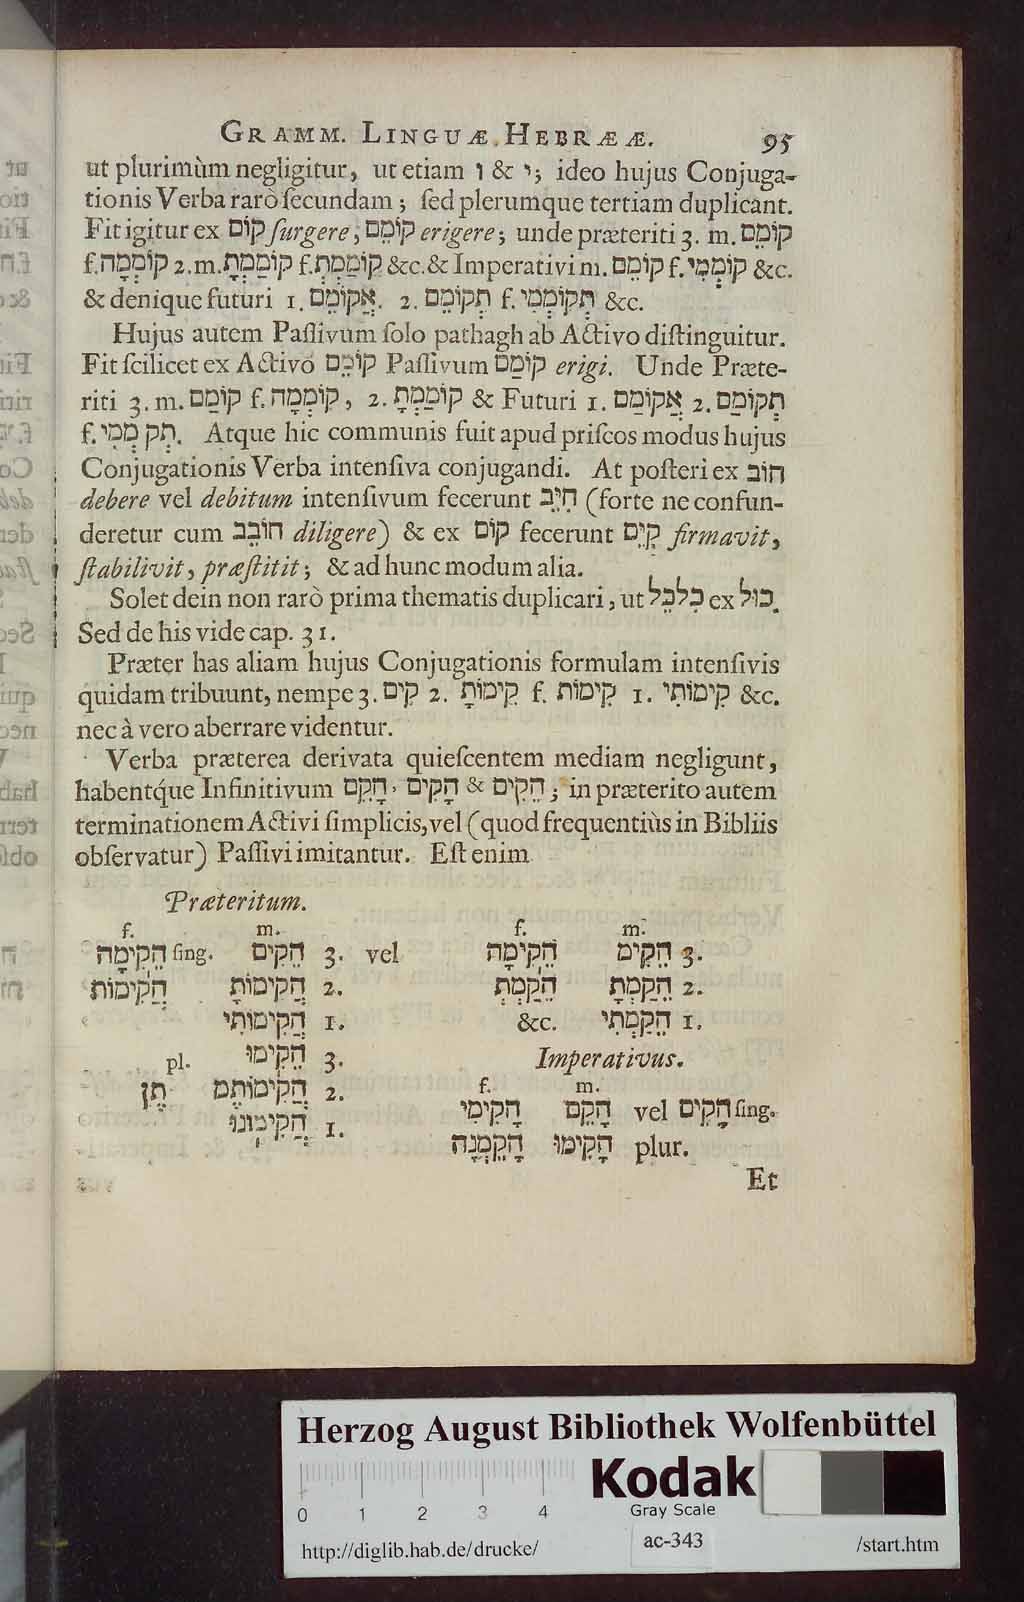 GRAMM. LINGUÆ HEBRÆÆ. 95
ut plurimùm negligitur, ut etiam ו & י; ideo hujus Conjuga-
tionis Verba rarò ſecundam; ſed plerumque tertiam duplicant.
Fit igitur ex קוֹם ſurgere, קוֹמֵם erigere; unde præteriti 3. m. קוֹמֵם
f. קוֹמְמָה 2. m. קוֹמַמְתָּ f. קוֹמַמְתְּ &c. & Imperativi m. קוֹמֵם f. קוֹמְמִי &c.
& denique futuri 1. אֲקוֹמֵם. 2. תְּקוֹמֵם f. תְּקוֹמְמִי &c.
Hujus autem Paſſivum ſolo pathagh ab Activo diſtinguitur.
Fit ſcilicet ex Activo קוֹמֵם Paſſivum קוֹמַם erigi. Unde Præte-
riti 3. m. קוֹמַם f. קוֹמְמָה, 2. קוֹמַמְתָּ & Futuri 1. אֲקוֹמַם 2. תְּקוֹמַם
f. תְּק מְמִי. Atque hic communis fuit apud priſcos modus hujus
Conjugationis Verba intenſiva conjugandi. At poſteri ex חוֹב
debere vel debitum intenſivum fecerunt חִיֵּב (forte ne confun-
deretur cum חוֹבֵב diligere) & ex קוֹם fecerunt קִיֵּם firmavit,
ſtabilivit, præſtitit; & ad hunc modum alia.
Solet dein non rarò prima thematis duplicari, ut כִּלְכֵּל ex כּוּל.
Sed de his vide cap. 31.
Præter has aliam hujus Conjugationis formulam intenſivis
quidam tribuunt, nempe 3. קִים 2. קִימוֹתָ f. קִימוֹת 1. קִימוֹתִי &c.
nec à vero aberrare videntur.
Verba præterea derivata quieſcentem mediam negligunt,
habentque Infinitivum הָקֵם, הָקִים & הֵקִים; in præterito autem
terminationem Activi ſimplicis, vel (quod frequentiùs in Bibliis
obſervatur) Paſſivi imitantur. Eſt enim
Præteritum.
f. m. f. m.
הֵקִימָה ſing. הֵקִים 3. vel הֵקִימָה הֵקִים 3.
הֲקִימוֹת הֲקִימוֹתָ 2. הֵקַמְתְּ הֵקַמְתָּ 2.
הֲקִימוֹתִי 1. &c. הֵקַמְתִּי 1.
pl. הֵקִימוּ 3. Imperativus.
תֶן הֲקִימוֹתֶם 2. f. m.
הֲקִימוֹנוּ 1. הָקִימִי הָקֵם vel הָקִים ſing.
הָקֵמְנָה הָקִימוּ plur.
Et
Herzog August Bibliothek Wolfenbüttel
Kodak
Gray Scale
0 1 2 3 4
http://diglib.hab.de/drucke/ ac-343 /start.htm